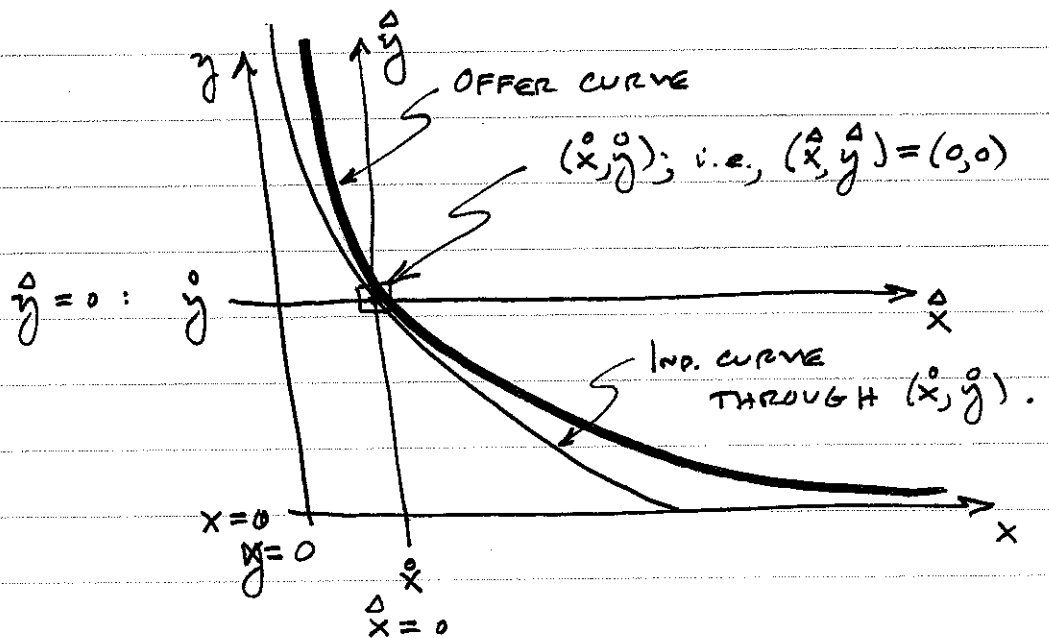 y
ŷ
OFFER CURVE
(x̊,ẙ); i.e., (x̂,ŷ)=(0,0)
ŷ = 0 : ẙ
x̂
IND. CURVE
THROUGH (x̊,ẙ).
x=0
y=0
x
x̊
x̂ = 0